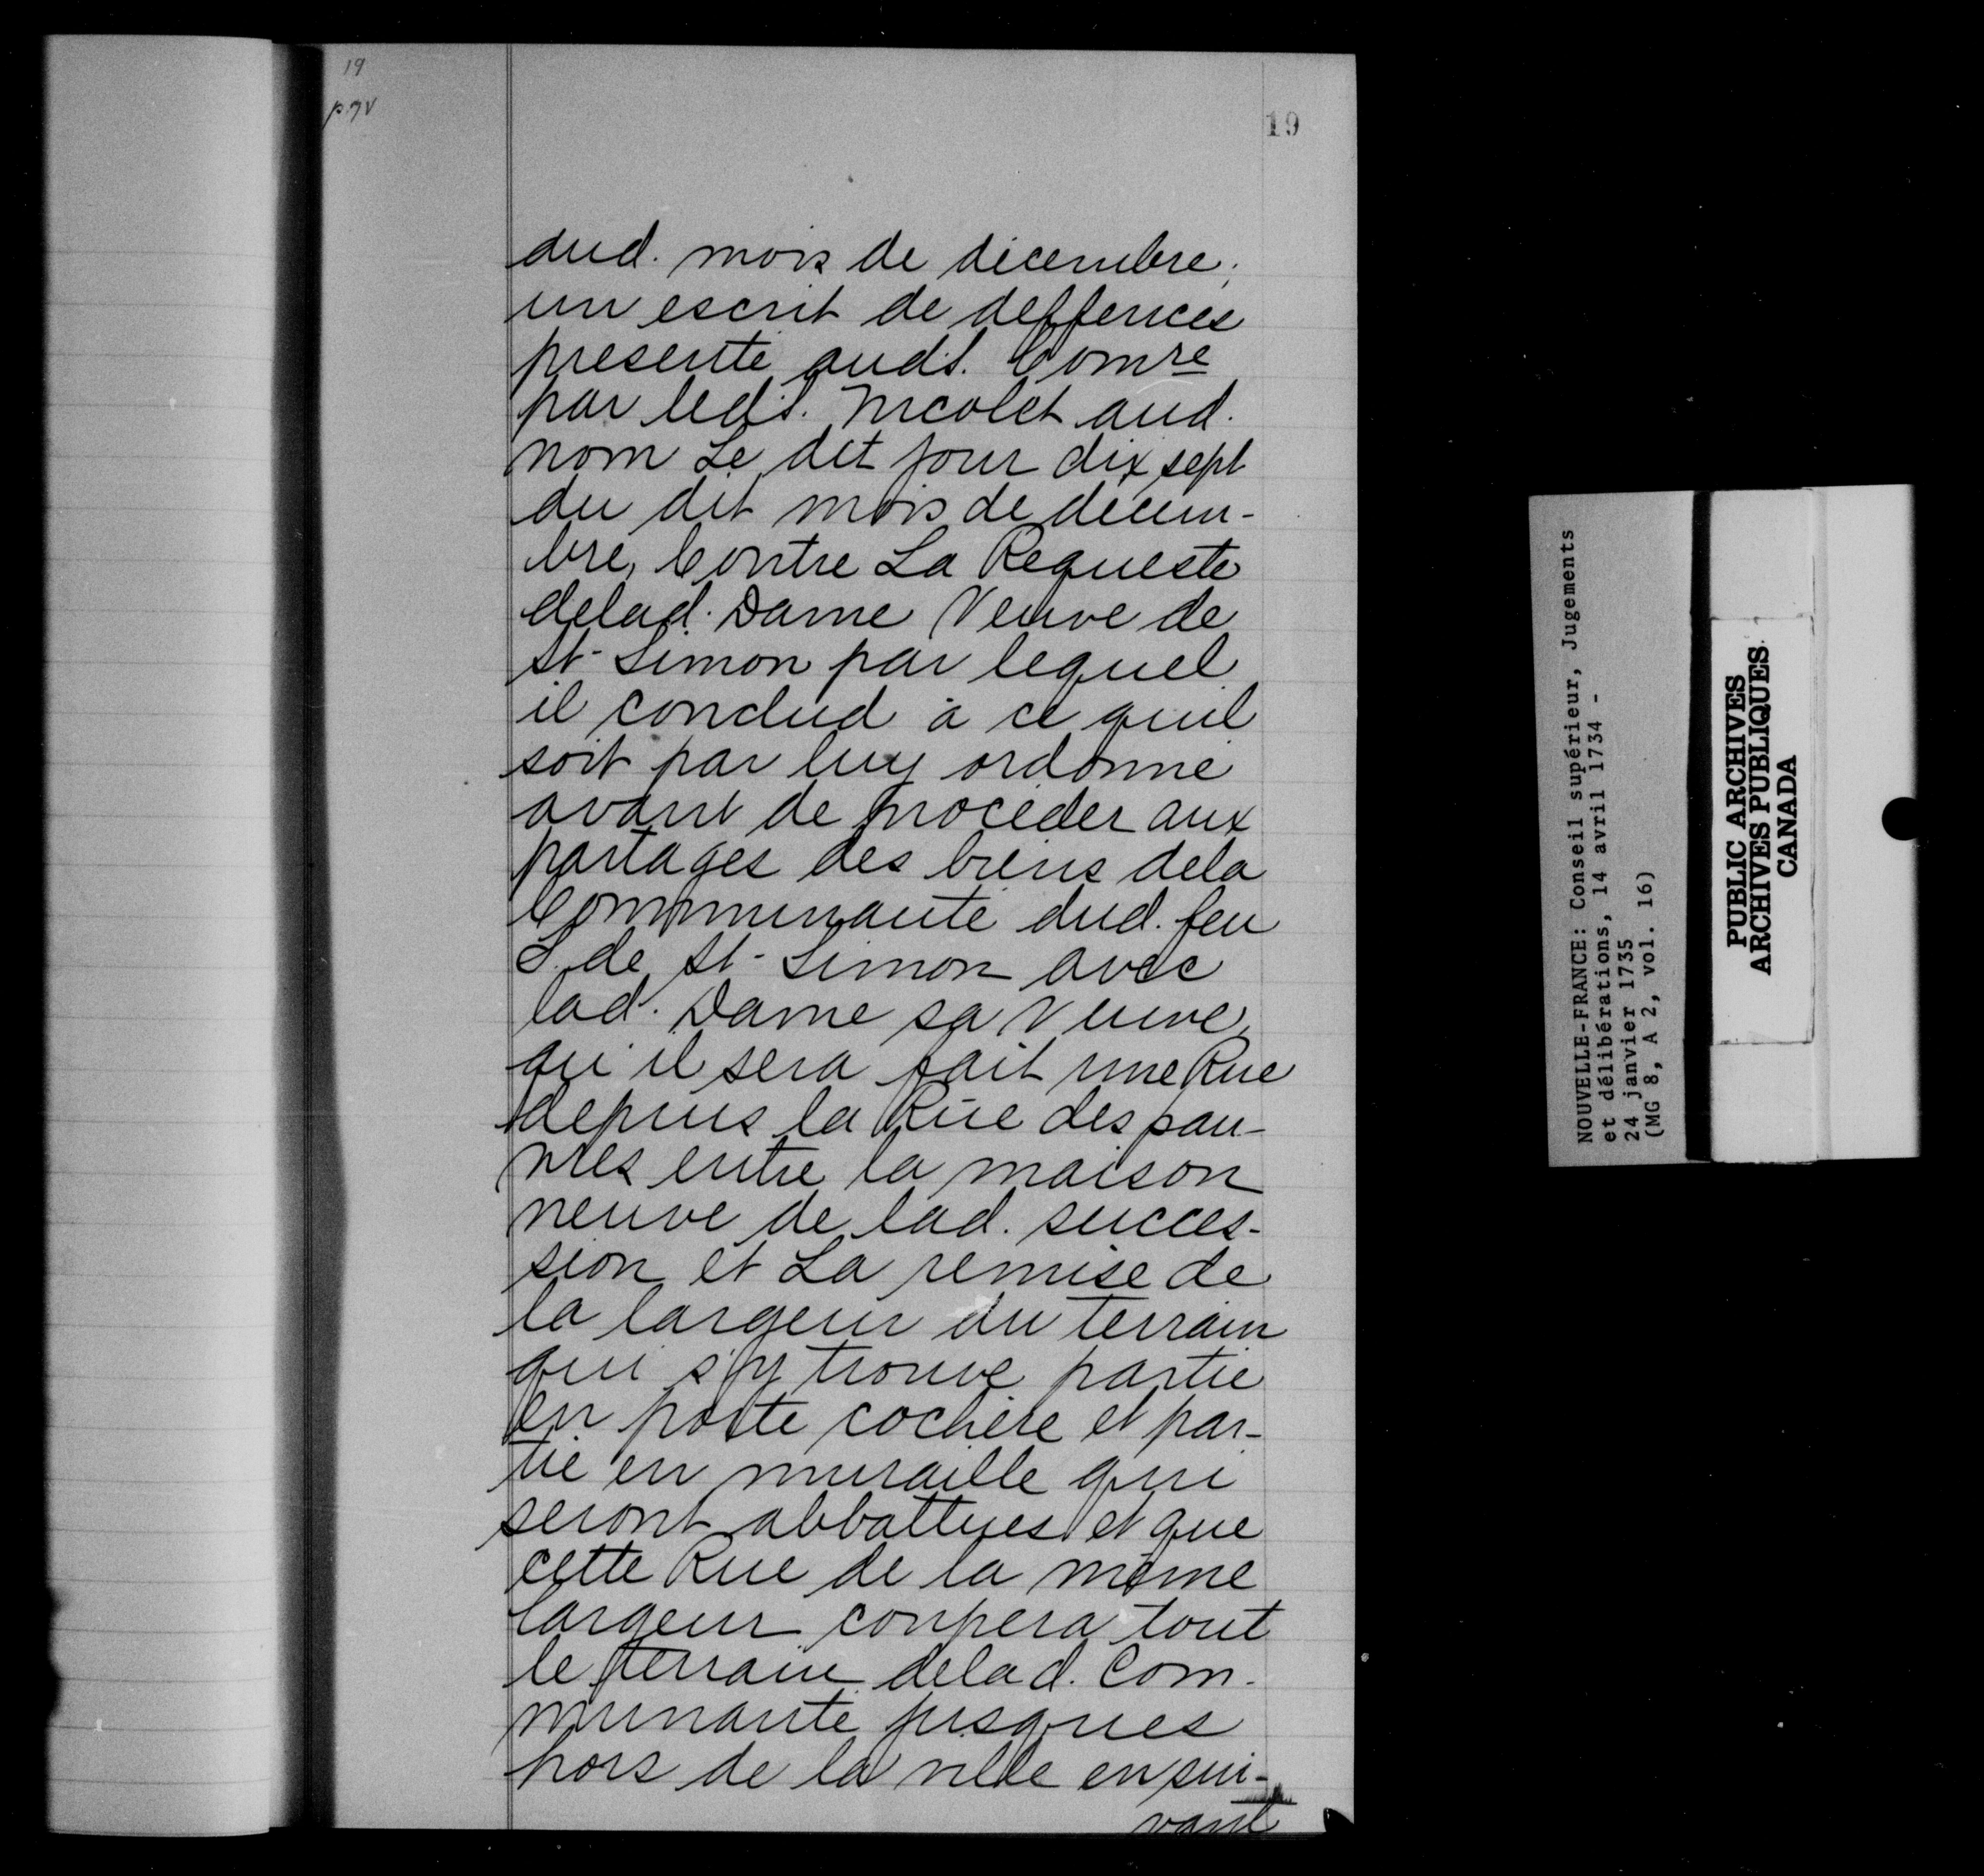 19
p 7v
19
dud. mois de décembre;
un escrit de deffences
presenté auds. Comre
par leds. Nicolet aud.
nom Le dit jour dix sept
du dit mois de décem-
bre, Contre La Requeste
delad. Dame Veuve de
St-Simon par lequel
il conclud à ce quil
soit par luy ordonné
avant de procéder aux
partages des biens dela
Communauté dud. feu
S. de St-Simon avec
lad. Dame sa Veuve,
qu'il sera fait une Rue
depuis la Rüe des pau-
vres entre la maison
neuve de lad. succes-
sion et La remise de
la largeur du terrain
qui s'y trouve partie
en porte cochère et par-
tie en muraille qui
seront abbattues et que
cette Rue de la même
largeur coupera tout
le terrain delad. Com-
munauté jusques
hors de la ville en sui-
vant
NOUVELLE-FRANCE: Conseil supérieur, Jugements
et délibérations, 14 avril 1734 -
24 janvier 1735
(MG 8, A 2, vol. 16)
PUBLIC ARCHIVES
ARCHIVES PUBLIQUES
CANADA